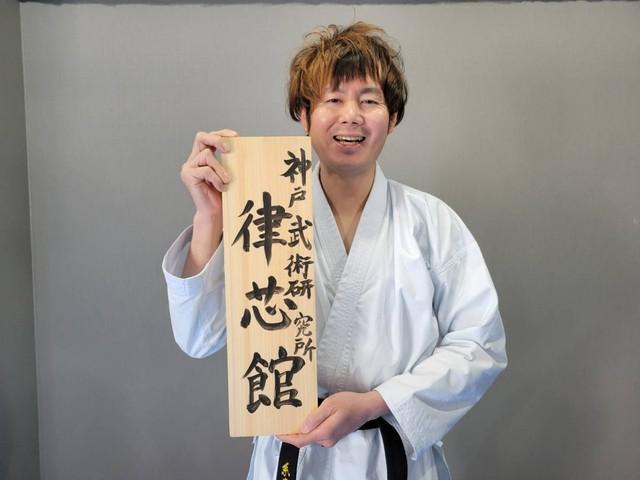 神戸武術研究所
律芯館
糸